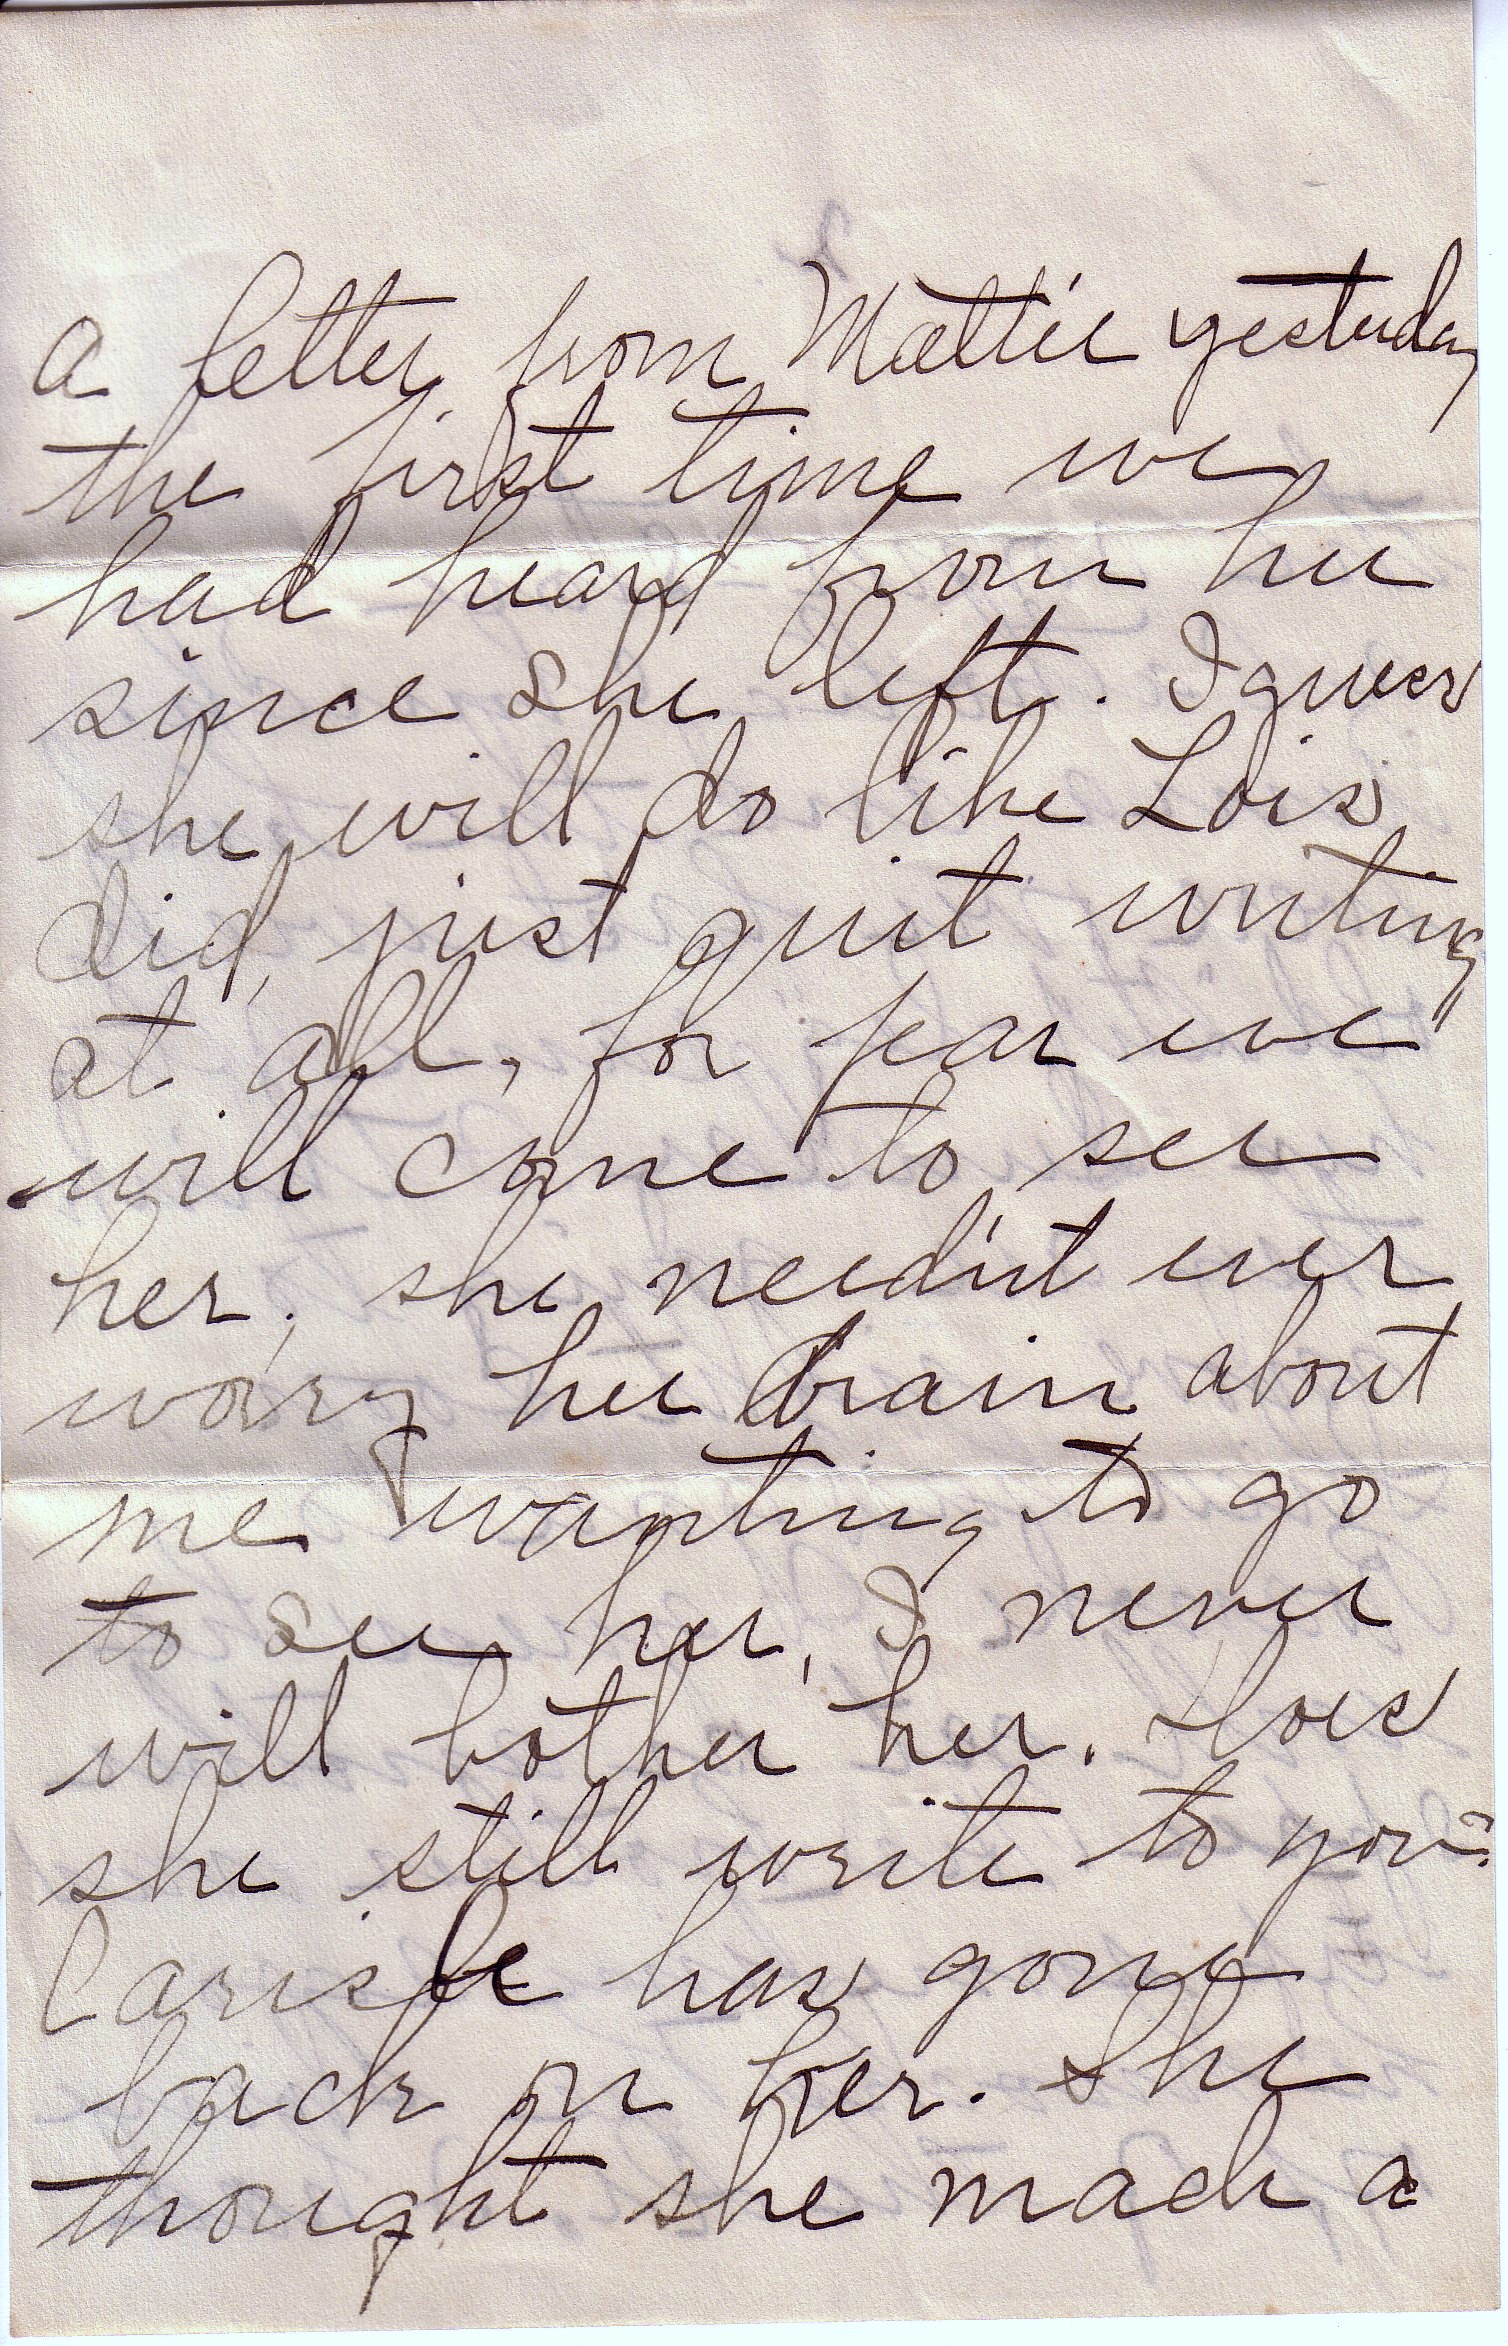 a letter from Mattie yesterday
the first time we
had heard from her
since she left. I guess
she will do like Lois
did, just quit writing
at all, for fear we
will come to see
her, she need'nt ever
worry her brain about
me wanting to go
to see her, I never
will bother her. Does
she still write to you?
Carisle has gone
back on her. She
thought she made a